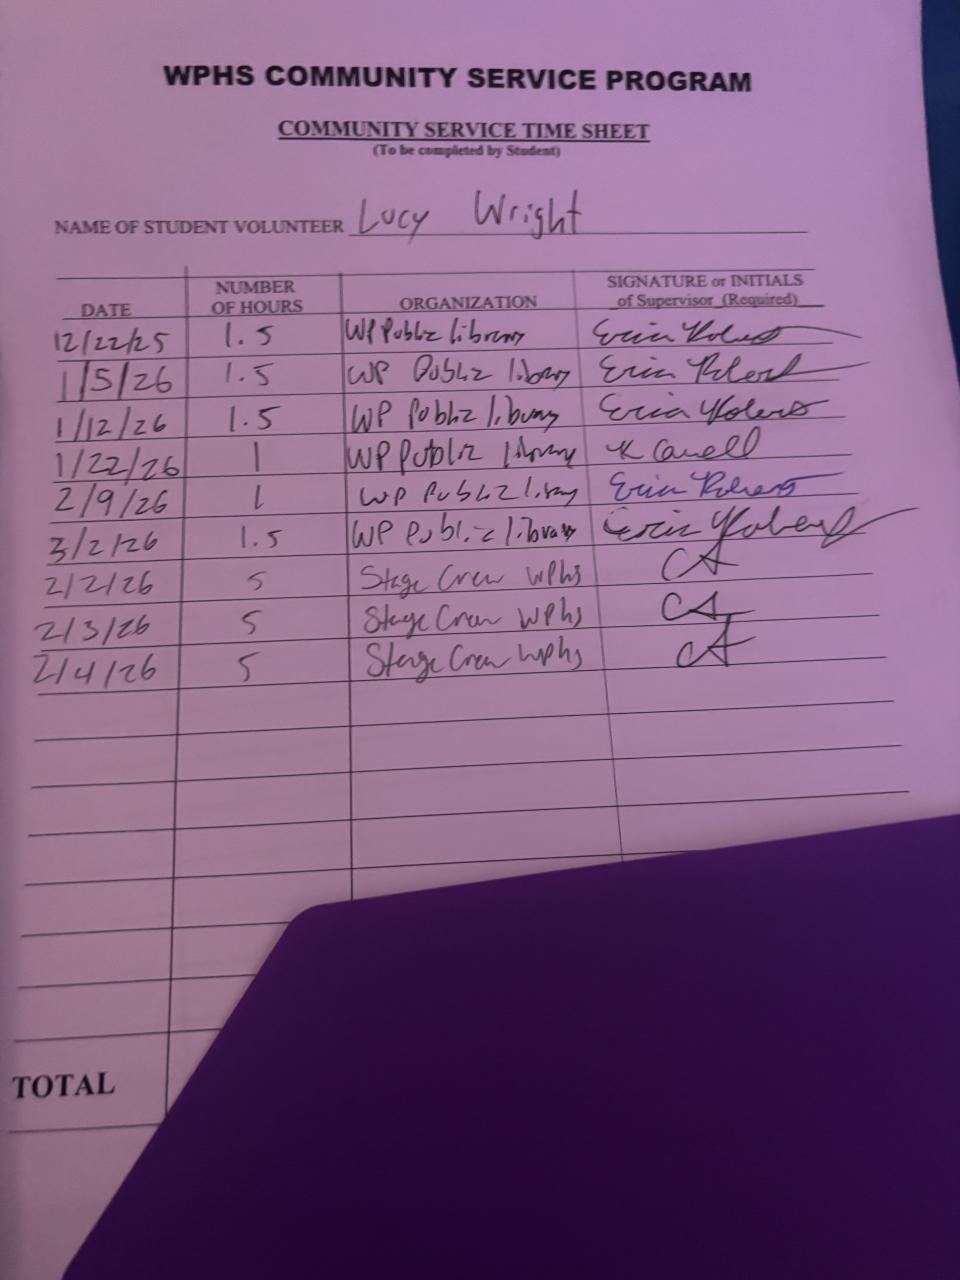 WPHS COMMUNITY SERVICE PROGRAM
COMMUNITY SERVICE TIME SHEET
(To be completed by Student)
NAME OF STUDENT VOLUNTEER Lucy Wright
DATE NUMBER OF HOURS ORGANIZATION SIGNATURE or INITIALS of Supervisor (Required)
12/22/25 1.5 WP Public library Erin
1/5/26 1.5 WP Public library Erin
1/12/26 1.5 WP Public library Erin
1/22/26 1 WP Public library K
2/9/26 1 WP Public library Erin
3/2/26 1.5 WP Public library Erin
2/2/26 5 Stage Crew WPhs CA
2/3/26 5 Stage Crew WPhs CA
2/4/26 5 Stage Crew WPhs CA
TOTAL